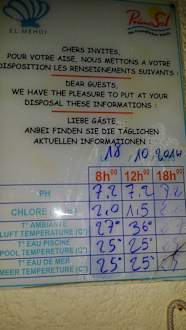 EL MEHDI
PrimaSol
CHERS INVITES,
POUR VOTRE AISE, NOUS METTONS A VOTRE
DISPOSITION LES RENSEIGNEMENTS SUIVANTS :
DEAR GUESTS,
WE HAVE THE PLEASURE TO PUT AT YOUR
DISPOSAL THESE INFORMATIONS :
LIEBE GÄSTE,
ANBEI FINDEN SIE DIE TÄGLICHEN
AKTUELLEN INFORMATIONEN :
18 10.2014
8h00 12h00 18h00
PH 7,2 7,2 7,2
CHLORE 2,0 1,5
T° AMBIANTE
LUFT TEMPERATURE (C°) 27° 36°
T° EAU PISCINE
POOL TEMPERATURE (C°) 25° 25°
T° EAU DE MER
MEER TEMPERETUR (C°) 25° 25°